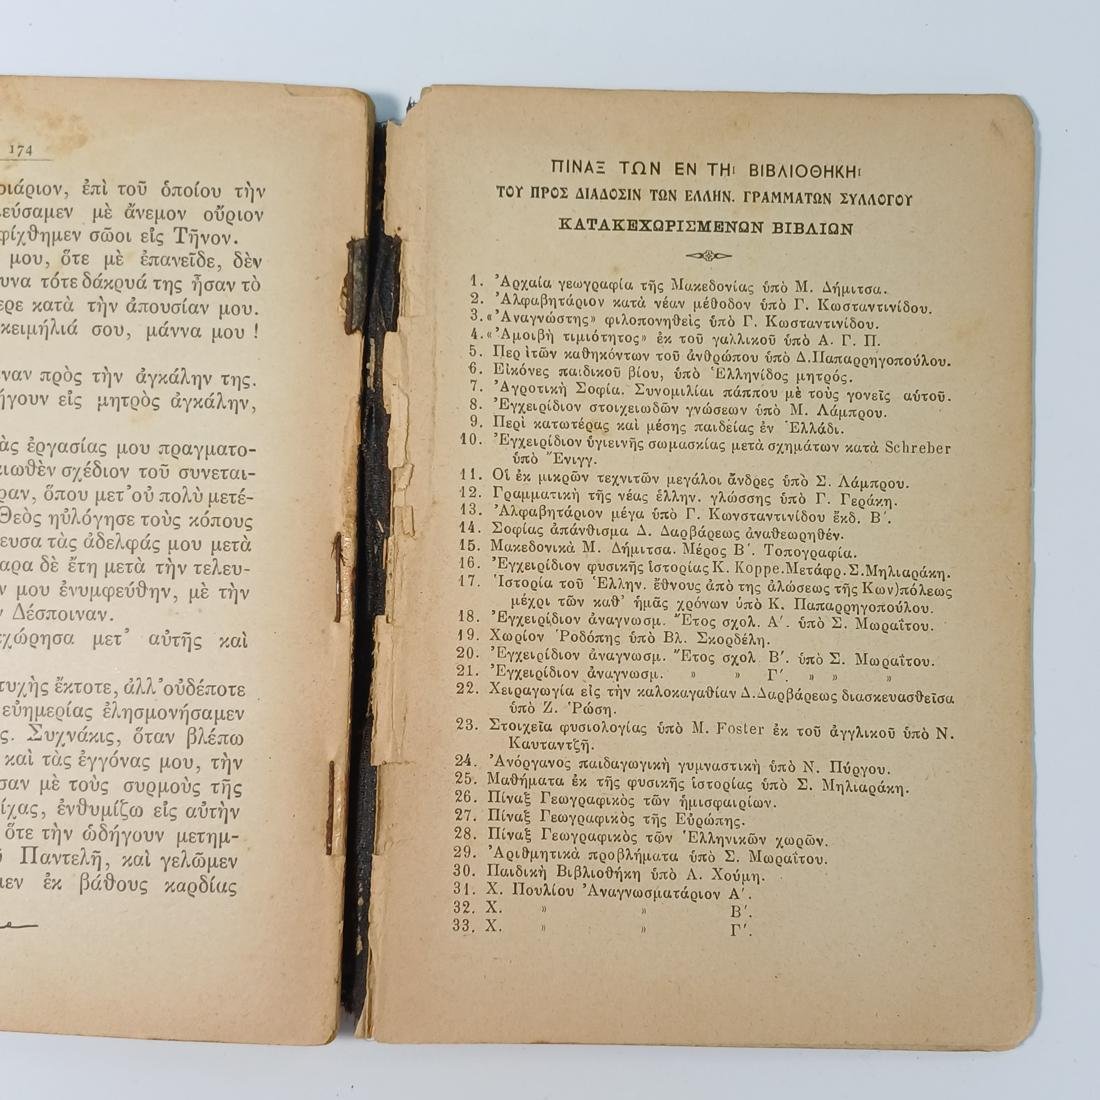 174
ριάριον, ἐπὶ τοῦ ὁποίου τὴν
εύσαμεν μὲ ἄνεμον οὔριον
φίχθημεν σῶοι εἰς Τῆνον.
μου, ὅτε μὲ ἐπανεῖδε, δὲν
υνα τότε δάκρυά της ἦσαν τὸ
ερε κατὰ τὴν ἀπουσίαν μου.
κειμήλιά σου, μάννα μου !
ναν πρὸς τὴν ἀγκάλην της.
ήγουν εἰς μητρὸς ἀγκάλην,
ὰς ἐργασίας μου πραγματο-
ιωθὲν σχέδιον τοῦ συνεται-
ραν, ὅπου μετ' οὐ πολὺ μετέ-
Θεὸς ηὐλόγησε τοὺς κόπους
ευσα τὰς ἀδελφάς μου μετὰ
αρα δὲ ἔτη μετὰ τὴν τελευ-
ν μου ἐνυμφεύθην, μὲ τὴν
ν Δέσποιναν.
εχώρησα μετ' αὐτῆς καὶ
τυχὴς ἔκτοτε, ἀλλ' οὐδέποτε
εὐημερίας ἐλησμονήσαμεν
ς. Συχνάκις, ὅταν βλέπω
καὶ τὰς ἐγγόνας μου, τὴν
σαν μὲ τοὺς συρμοὺς τῆς
ίχας, ἐνθυμίζω εἰς αὐτὴν
ὅτε τὴν ὡδήγουν μετημ-
ῦ Παντελῆ, καὶ γελῶμεν
μεν ἐκ βάθους καρδίας
ΠΙΝΑΞ ΤΩΝ ΕΝ ΤΗι ΒΙΒΛΙΟΘΗΚΗι
ΤΟΥ ΠΡΟΣ ΔΙΑΔΟΣΙΝ ΤΩΝ ΕΛΛΗΝ. ΓΡΑΜΜΑΤΩΝ ΣΥΛΛΟΓΟΥ
ΚΑΤΑΚΕΧΩΡΙΣΜΕΝΩΝ ΒΙΒΛΙΩΝ
1. Ἀρχαία γεωγραφία τῆς Μακεδονίας ὑπὸ Μ. Δήμιτσα.
2. Ἀλφαβητάριον κατὰ νέαν μέθοδον ὑπὸ Γ. Κωσταντινίδου.
3. «Ἀναγνώστης» φιλοπονηθεὶς ὑπὸ Γ. Κωσταντινίδου.
4. «Ἀμοιβὴ τιμιότητος» ἐκ τοῦ γαλλικοῦ ὑπὸ Α. Γ. Π.
5. Περὶ τῶν καθηκόντων τοῦ ἀνθρώπου ὑπὸ Δ. Παπαρρηγοπούλου.
6. Εἰκόνες παιδικοῦ βίου, ὑπὸ Ἑλληνίδος μητρός.
7. Ἀγροτικὴ Σοφία. Συνομιλίαι πάππου μὲ τοὺς γονεῖς αὐτοῦ.
8. Ἐγχειρίδιον στοιχειωδῶν γνώσεων ὑπὸ Μ. Λάμπρου.
9. Περὶ κατωτέρας καὶ μέσης παιδείας ἐν Ἑλλάδι.
10. Ἐγχειρίδιον ὑγιεινῆς σωμασκίας μετὰ σχημάτων κατὰ Schreber
ὑπὸ Ἔνιγγ.
11. Οἱ ἐκ μικρῶν τεχνιτῶν μεγάλοι ἄνδρες ὑπὸ Σ. Λάμπρου.
12. Γραμματικὴ τῆς νέας ἑλλην. γλώσσης ὑπὸ Γ. Γεράκη.
13. Ἀλφαβητάριον μέγα ὑπὸ Γ. Κωνσταντινίδου ἐκδ. Β΄.
14. Σοφίας ἀπάνθισμα Δ. Δαρβάρεως ἀναθεωρηθέν.
15. Μακεδονικὰ Μ. Δήμιτσα. Μέρος Β΄. Τοπογραφία.
16. Ἐγχειρίδιον φυσικῆς ἱστορίας Κ. Koppe. Μετάφρ. Σ. Μηλιαράκη.
17. Ἱστορία τοῦ Ἑλλην. ἔθνους ἀπὸ τῆς ἁλώσεως τῆς Κων)πόλεως
μέχρι τῶν καθ' ἡμᾶς χρόνων ὑπὸ Κ. Παπαρρηγοπούλου.
18. Ἐγχειρίδιον ἀναγνωσμ. Ἔτος σχολ. Α΄. ὑπὸ Σ. Μωραΐτου.
19. Χωρίον Ῥοδόπης ὑπὸ Βλ. Σκορδέλη.
20. Ἐγχειρίδιον ἀναγνωσμ. Ἔτος σχολ Β΄. ὑπὸ Σ. Μωραΐτου.
21. Ἐγχειρίδιον ἀναγνωσμ. » » Γ΄. » » »
22. Χειραγωγία εἰς τὴν καλοκαγαθίαν Δ. Δαρβάρεως διασκευασθεῖσα
ὑπὸ Ζ. Ῥώση.
23. Στοιχεῖα φυσιολογίας ὑπὸ Μ. Foster ἐκ τοῦ ἀγγλικοῦ ὑπὸ Ν.
Καυταντζῆ.
24. Ἀνόργανος παιδαγωγικὴ γυμναστικὴ ὑπὸ Ν. Πύργου.
25. Μαθήματα ἐκ τῆς φυσικῆς ἱστορίας ὑπὸ Σ. Μηλιαράκη.
26. Πίναξ Γεωγραφικὸς τῶν ἡμισφαιρίων.
27. Πίναξ Γεωγραφικὸς τῆς Εὐρώπης.
28. Πίναξ Γεωγραφικὸς τῶν Ἑλληνικῶν χωρῶν.
29. Ἀριθμητικὰ προβλήματα ὑπὸ Σ. Μωραΐτου.
30. Παιδικὴ Βιβλιοθήκη ὑπὸ Λ. Χούμη.
31. Χ. Πουλίου Ἀναγνωσματάριον Α΄.
32. Χ. » » Β΄.
33. Χ. » » Γ΄.